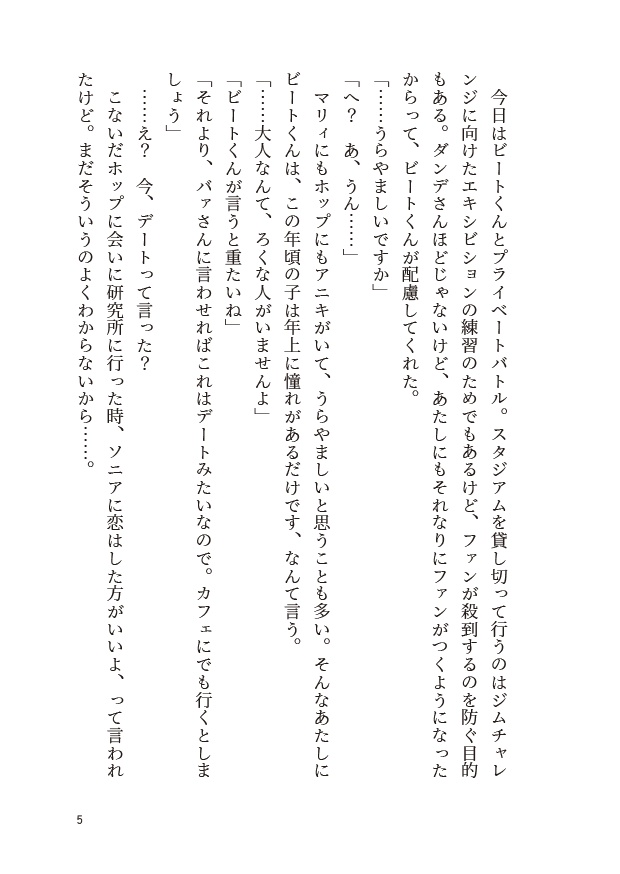 今日はビートくんとプライベートバトル。スタジアムを貸し切って行うのはジムチャレ
ンジに向けたエキシビションの練習のためでもあるけど、ファンが殺到するのを防ぐ目的
もある。ダンデさんほどじゃないけど、あたしにもそれなりにファンがつくようになった
からって、ビートくんが配慮してくれた。
「……うらやましいですか」
「へ？　あ、うん……」
　マリィにもホップにもアニキがいて、うらやましいと思うことも多い。そんなあたしに
ビートくんは、この年頃の子は年上に憧れがあるだけです、なんて言う。
「……大人なんて、ろくな人がいませんよ」
「ビートくんが言うと重たいね」
「それより、バァさんに言わせればこれはデートみたいなので。カフェにでも行くとしま
しょう」
　……え？　今、デートって言った？
　こないだホップに会いに研究所に行った時、ソニアに恋はした方がいいよ、って言われ
たけど。まだそういうのよくわからないから……。
5